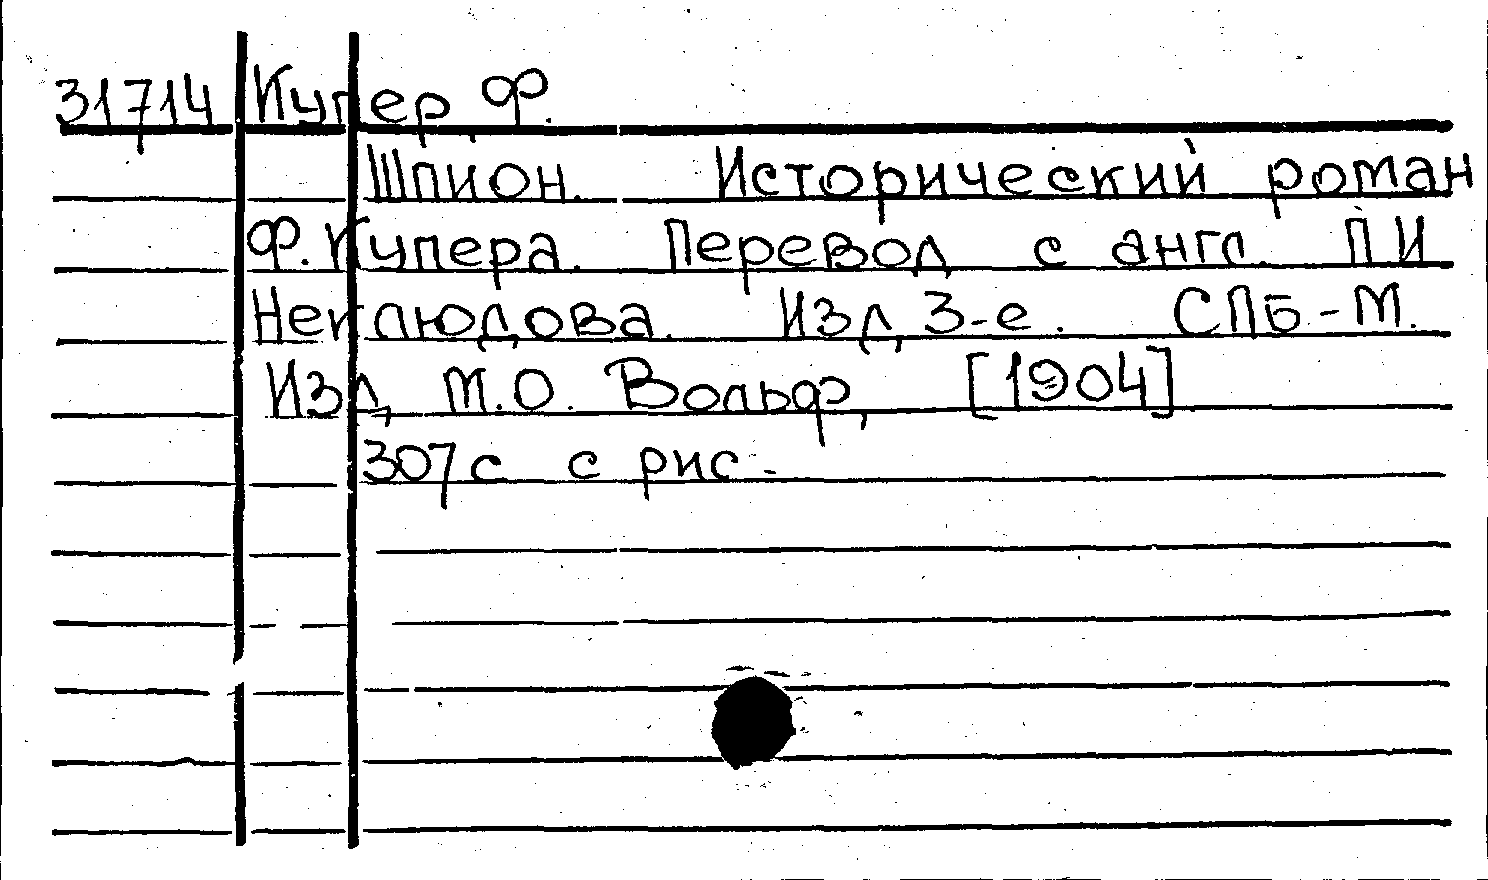 31714 Купер Ф.
Шпион. Исторический роман
Ф. Купера. Перевод с англ. П И
Неклюдова. Изд, 3-е. СПБ-М.
Изд, М.О. Вольф, [1904]
307 с с рис.